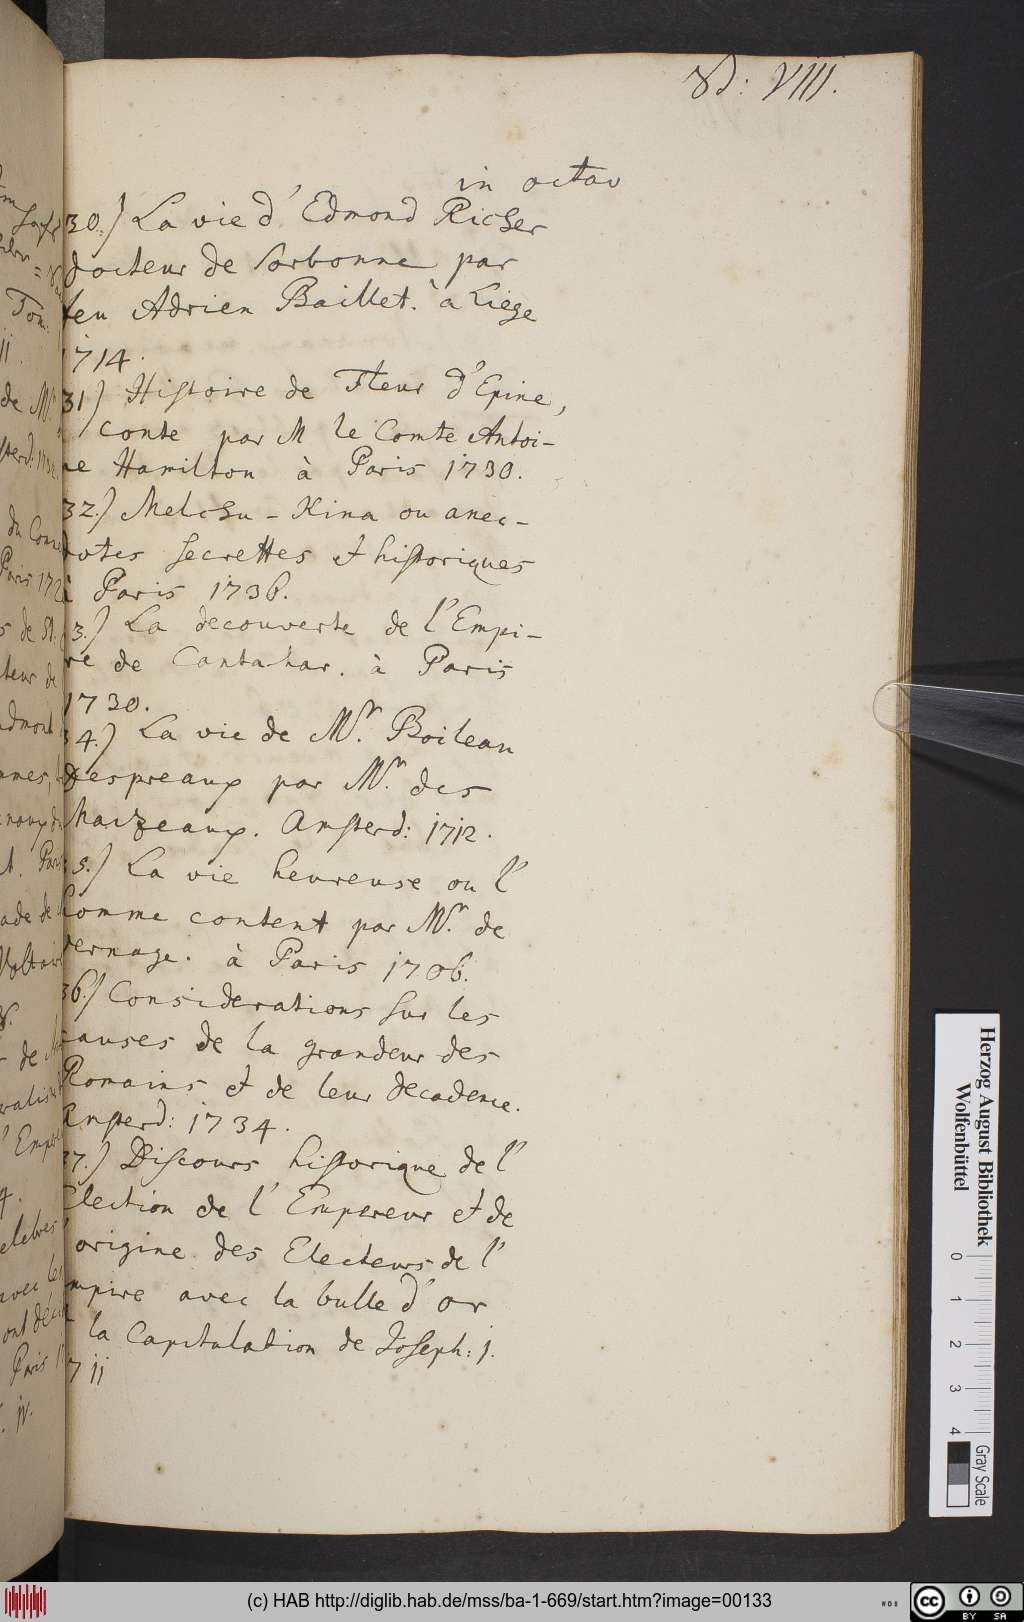 VIII.
in octav
30.) La vie d' Edmond Richer
docteur de Sorbonne par
feu Adrien Baillet. à Liege
1714.
31) Histoire de Fleur d'Epine,
conte par M le Comte Antoi-
ne Hamilton à Paris 1730.
32.) Melchu-Kina ou anec-
dotes secrettes et historiques
à Paris 1736.
3.) La decouverte de l'Empi-
re de Cantahar. à Paris
1730.
34.) La vie de Mr. Boileau
Despreaux par Mr. des
Maizeaux. Amsterd: 1712.
5.) La vie heureuse ou l'
homme content par Mr. de
vernage. à Paris 1706.
36.) Considerations sur les
causes de la grandeur des
Romains et de leur decadence.
Amsterd: 1734.
37.) Discours historique de l'
Election de l' Empereur et de
origine des Electeurs de l'
mpire avec la bulle d' or
la Capitulation de Joseph: j.
7jj
Herzog August Bibliothek
Wolfenbüttel
0 1 2 3 4
Gray Scale
(c) HAB http://diglib.hab.de/mss/ba-1-669/start.htm?image=00133
cc BY SA